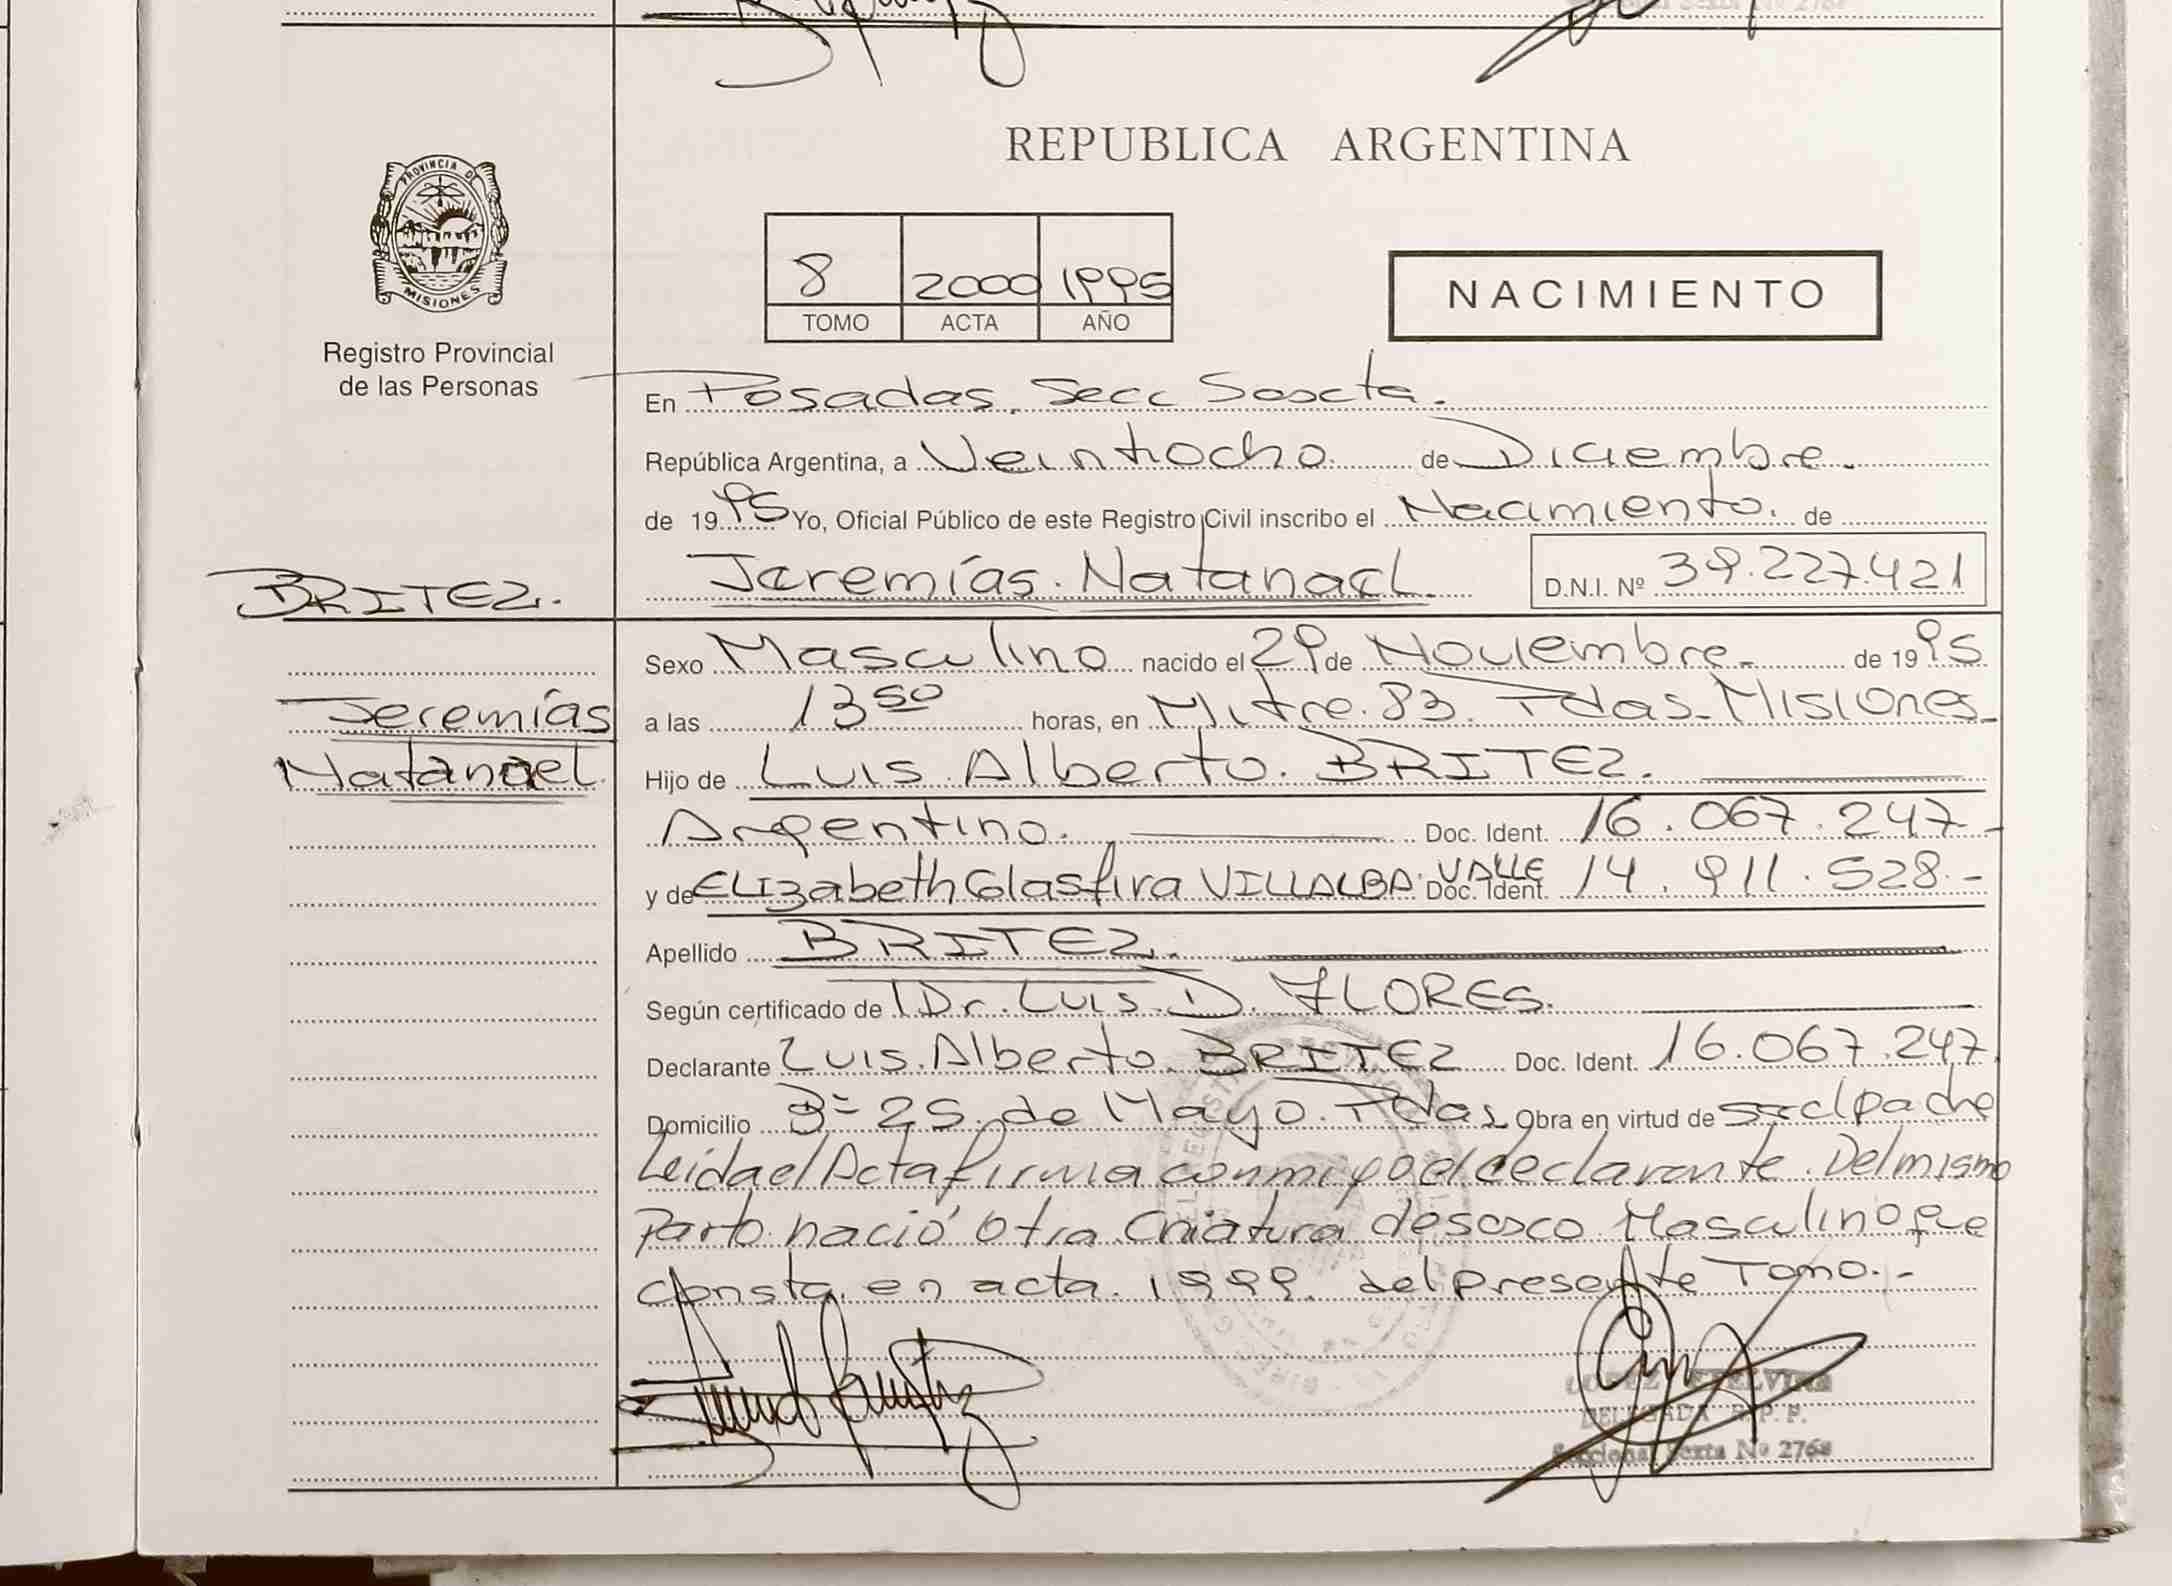 REPUBLICA ARGENTINA
PROVINCIA DE
MISIONES
Registro Provincial
de las Personas
8 2000 1995
TOMO ACTA AÑO
NACIMIENTO
En Posadas, Secc Sexta.
República Argentina, a Veintiocho de Diciembre.
de 1995 Yo, Oficial Público de este Registro Civil inscribo el Nacimiento. de
Jeremías Natanael D.N.I. Nº 39.227.421
BRITEZ.
Jeremías
Natanael
Sexo Masculino nacido el 29 de Noviembre de 1995
a las 13 50 horas, en Mitre 83. Pdas. Misiones
Hijo de Luis Alberto BRITEZ.
Argentino. Doc. Ident. 16.067.247
y de ELIzabeth Glasfira VILLALBA VALLE Doc. Ident. 14.911.528.-
Apellido BRITEZ.
Según certificado de Dr. Luis D. FLORES.
Declarante Luis Alberto BRITEZ Doc. Ident. 16.067.247
Domicilio Bº 25 de Mayo. Pdas Obra en virtud de ser el padre
Leida el Acta firma conmigo el declarante. Del mismo
Parto nació otra Criatura de sexo Masculino que
consta en acta 1999 del presente Tomo.-
DELEGADA R.P.P.
Seccional Sexta Nº 2768